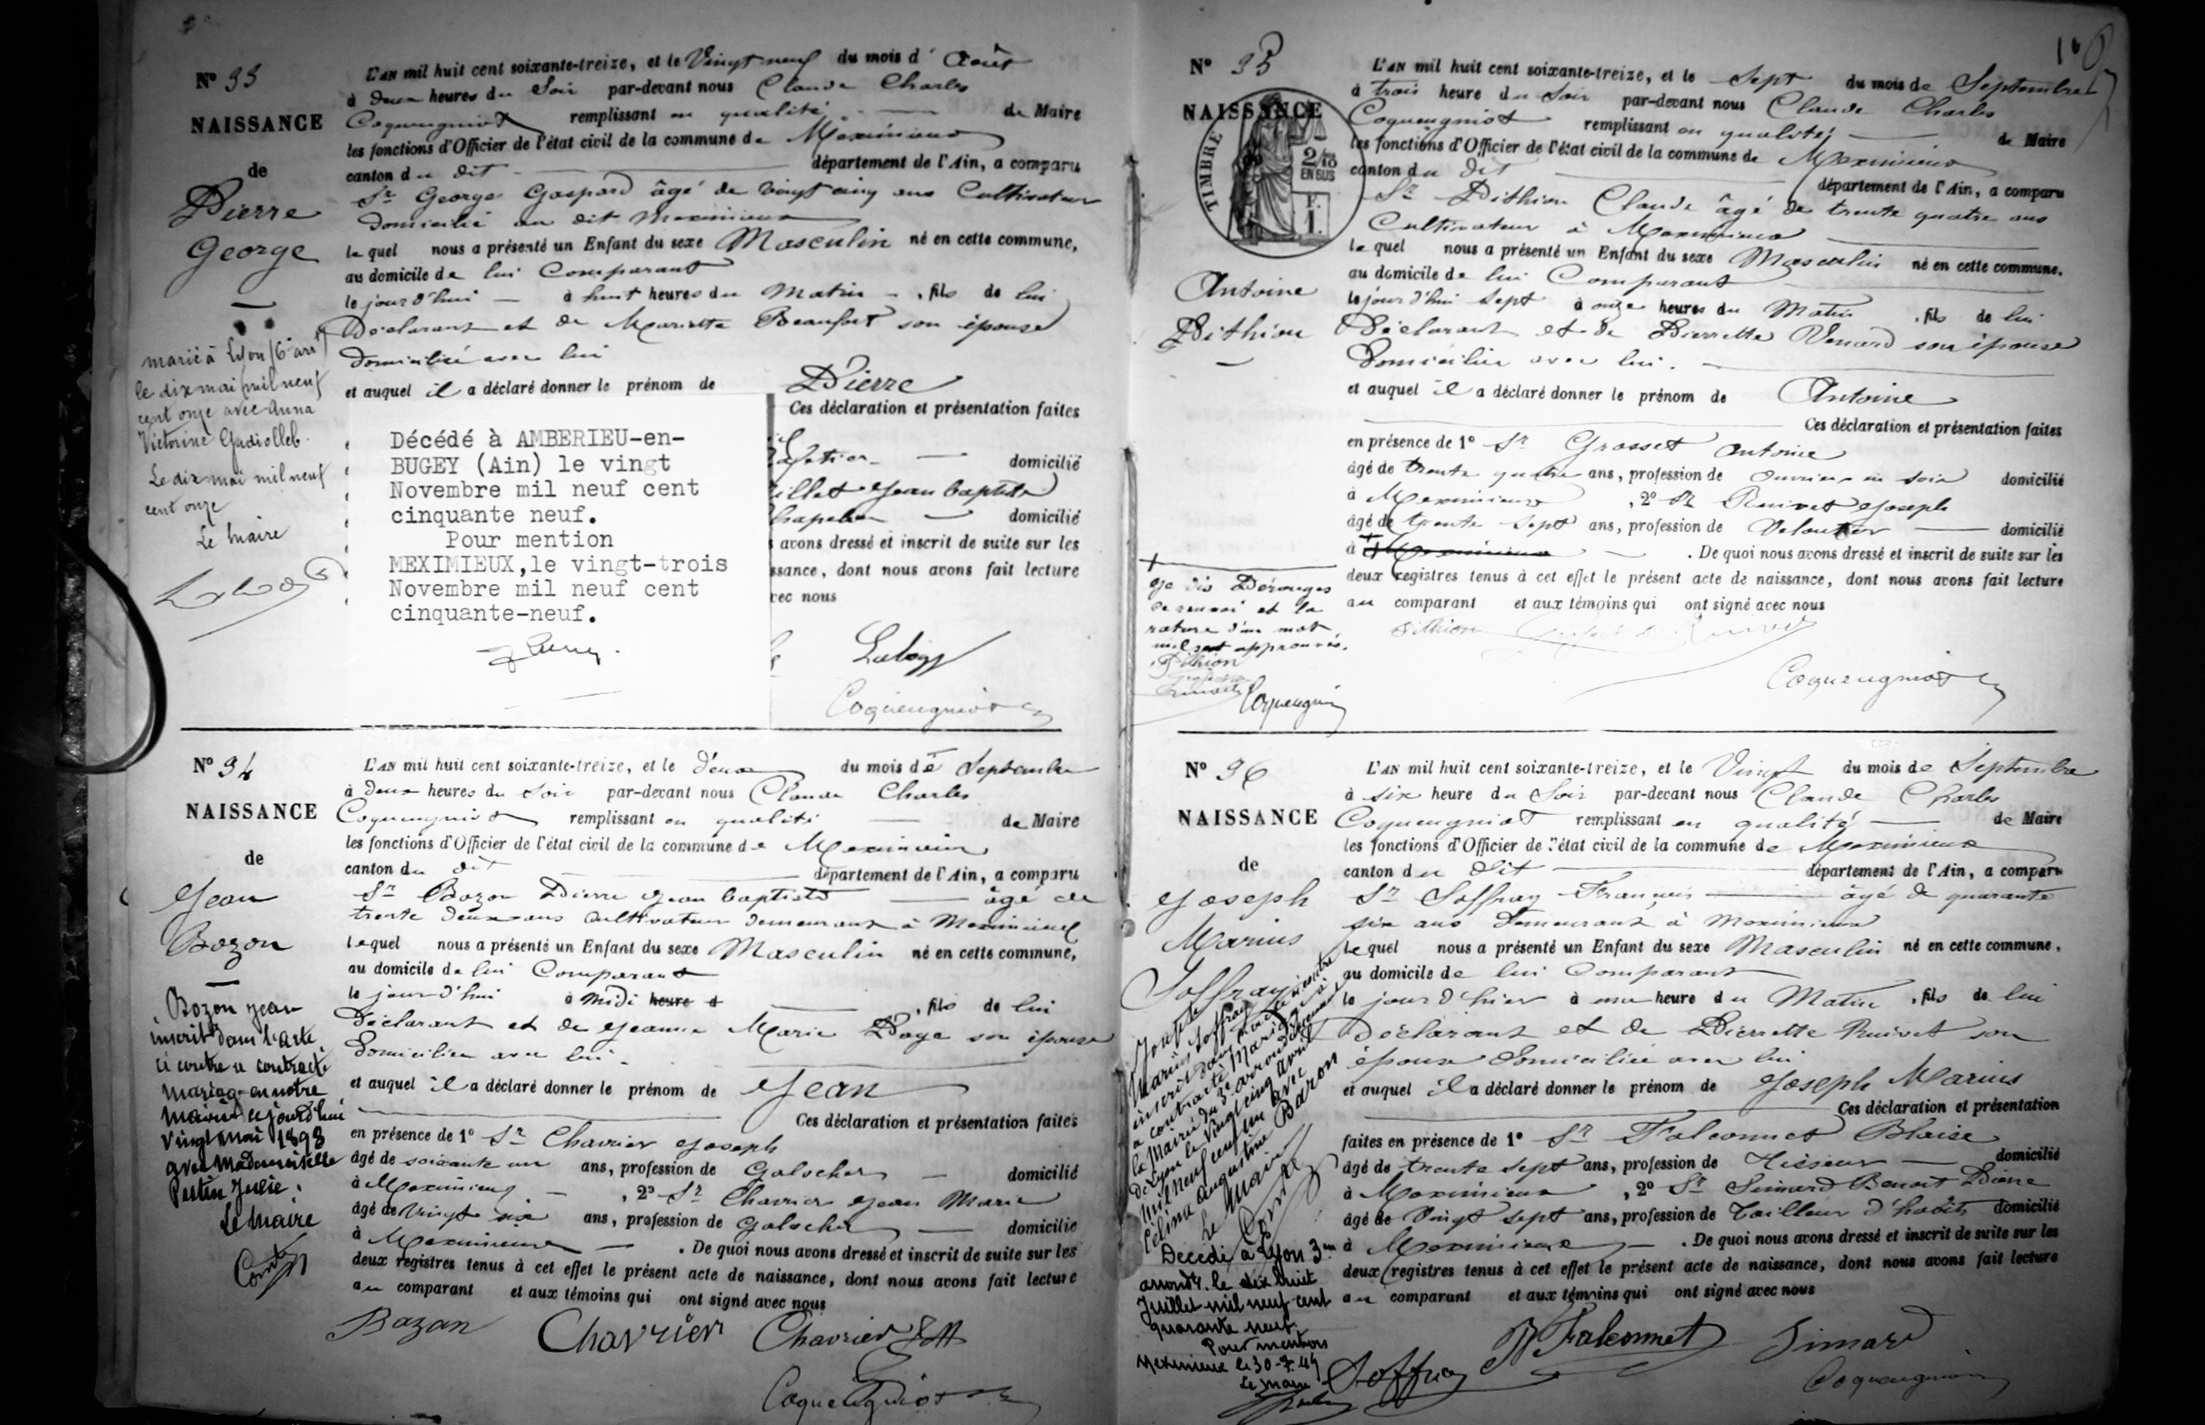 Nº 93
NAISSANCE
de
Pierre
George
marié à Lyon (6e arrt)
le dix mai mil neuf
cent onze avec Anna
Victorine
Le dix mai mil neuf
cent onze
Le Maire
L'AN mil huit cent soixante-treize, et le Vingt neuf du mois d'Août
à deux heures du Soir par-devant nous Claude Charles
Coqueugniot remplissant en qualité de Maire
les fonctions d'Officier de l'état civil de la commune de Meximieux
canton du dit département de l'Ain, a comparu
Sr George Gaspard âgé de vingt cinq ans Cultivateur
domicilié au dit Meximieux
lequel nous a présenté un Enfant du sexe Masculin né en cette commune,
au domicile de lui Comparant
le jour d'hui à huit heures du Matin, fils de lui
Déclarant et de Mariette Beaufort son épouse
domiciliée avec lui
et auquel il a déclaré donner le prénom de Pierre
Ces déclaration et présentation faites
domicilié
illet Jean Baptiste
domicilié
s avons dressé et inscrit de suite sur les
ssance, dont nous avons fait lecture
vec nous
Décédé à AMBERIEU-en-
BUGEY (Ain) le vingt
Novembre mil neuf cent
cinquante neuf.
Pour mention
MEXIMIEUX,le vingt-trois
Novembre mil neuf cent
cinquante-neuf.
Coqueugniot
Nº 94
NAISSANCE
de
Jean
Bozon
Bozon Jean
inscrit dans l'acte
ci contre a contracté
mariage en notre
mairie ce jourd'hui
vingt mai 1898
avec Mademoiselle
Pertin Julie.
Le Maire
L'AN mil huit cent soixante-treize, et le deux du mois de Septembre
à deux heures du Soir par-devant nous Claude Charles
Coqueugniot remplissant en qualité de Maire
les fonctions d'Officier de l'état civil de la commune de Meximieux
canton du dit département de l'Ain, a comparu
Sr Bozon Pierre Jean Baptiste âgé de
trente deux ans Cultivateur demeurant à Meximieux
lequel nous a présenté un Enfant du sexe Masculin né en cette commune,
au domicile de lui Comparant
le jour d'hui à midi heure d, fils de lui
Déclarant et de Jeanne Marie Page son épouse
domiciliée avec lui.
et auquel il a déclaré donner le prénom de Jean
Ces déclaration et présentation faites
en présence de 1º Sr Chavrier Joseph
âgé de soixante un ans, profession de Galocher domicilié
à Meximieux, 2º Sr Chavrier Jean Marie
âgé de Vingt six ans, profession de Galocher domicilié
à Meximieux. De quoi nous avons dressé et inscrit de suite sur les
deux registres tenus à cet effet le présent acte de naissance, dont nous avons fait lecture
au comparant et aux témoins qui ont signé avec nous
Bozon Chavrier Chavrier J M
Coqueugniot
Nº 95
NAISSANCE
TIMBRE
2/10
EN SUS
F.
1.
Antoine
Pithiou
Je dis Pérouges
ce renvoi et la
rature d'un mot
nul sont approuvés.
Pithiou
Coqueugniot
L'AN mil huit cent soixante-treize, et le Sept du mois de Septembre
à trois heure du Soir par-devant nous Claude Charles
Coqueugniot remplissant en qualité de Maire
les fonctions d'Officier de l'état civil de la commune de Meximieux
canton du dit département de l'Ain, a comparu
Sr Pithiou Claude âgé de trente quatre ans
Cultivateur à Meximieux
lequel nous a présenté un Enfant du sexe Masculin né en cette commune,
au domicile de lui Comparant
le jour d'hui sept à onze heures du Matin, fils de lui
Déclarant et de Pierrette Venard son épouse
domiciliée avec lui.
et auquel il a déclaré donner le prénom de Antoine
Ces déclaration et présentation faites
en présence de 1º Sr Grosset Antoine
âgé de trente quatre ans, profession de ouvrier en soie domicilié
à Meximieux, 2º Sr Ruivet Joseph
âgé de trente sept ans, profession de Veloutier domicilié
à Meximieux. De quoi nous avons dressé et inscrit de suite sur les
deux registres tenus à cet effet le présent acte de naissance, dont nous avons fait lecture
au comparant et aux témoins qui ont signé avec nous
Pithiou
Coqueugniot
Nº 96
NAISSANCE
de
Joseph
Marius
Soffray
Joseph
Marius Soffray
inscrit dans l'acte ci contre
a contracté mariage à
la mairie du 3e arrondissement
de Lyon le vingt cinq avril
mil neuf cent un avec
Célina Augustine Baron
Le Maire
Décédé à Lyon 3me
arrondt. le dix huit
Juillet mil neuf cent
quarante neuf.
Pour mention
Meximieux le 30-7-49
Le Maire
L'AN mil huit cent soixante-treize, et le Vingt du mois de Septembre
à six heure du Soir par-devant nous Claude Charles
Coqueugniot remplissant en qualité de Maire
les fonctions d'Officier de l'état civil de la commune de Meximieux
canton du dit département de l'Ain, a comparu
Sr Soffray François âgé de quarante
six ans demeurant à Meximieux
lequel nous a présenté un Enfant du sexe Masculin né en cette commune,
au domicile de lui Comparant
le jour d'hier à une heure du Matin, fils de lui
Déclarant et de Pierrette Ruivet son
épouse domiciliée avec lui
et auquel il a déclaré donner le prénom de Joseph Marius
Ces déclaration et présentation
faites en présence de 1º Sr Falconnet Blaise
âgé de trente sept ans, profession de Tisseur domicilié
à Meximieux, 2º Sr Simard Benoit Pierre
âgé de Vingt sept ans, profession de Tailleur d'habits domicilié
à Meximieux. De quoi nous avons dressé et inscrit de suite sur les
deux registres tenus à cet effet le présent acte de naissance, dont nous avons fait lecture
au comparant et aux témoins qui ont signé avec nous
Soffray B Falconnet Simard
Coqueugniot